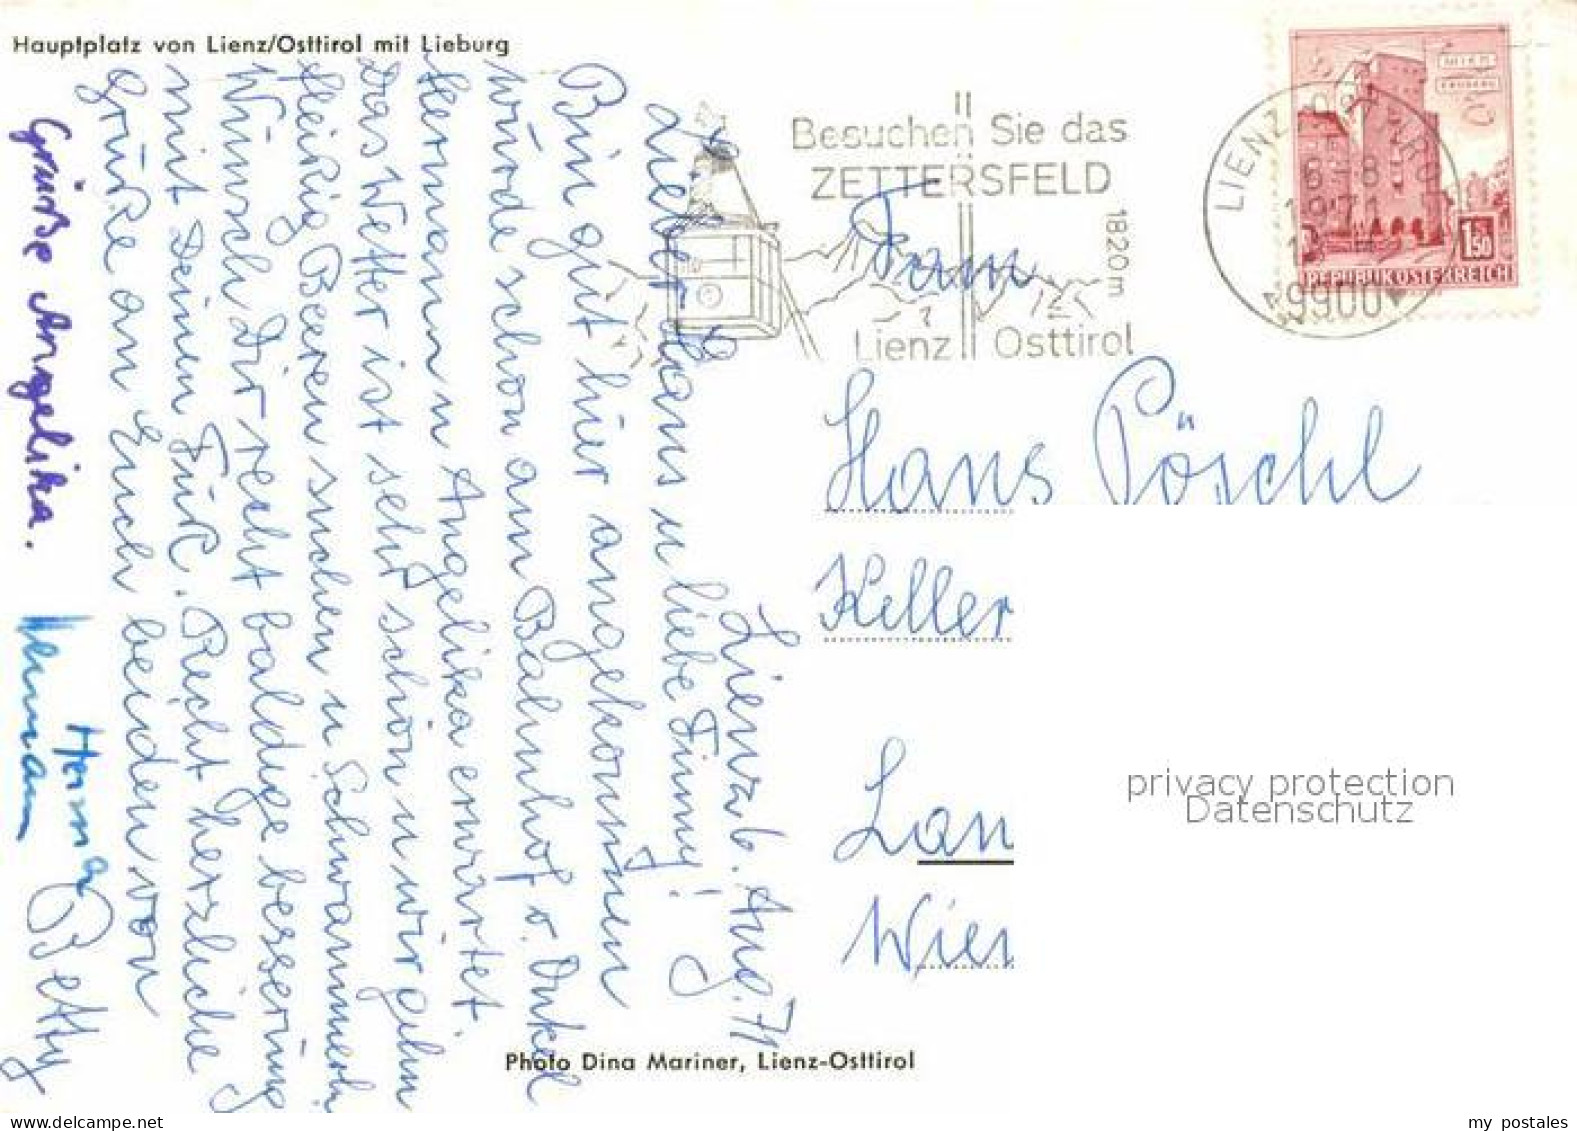 Hauptplatz von Lienz/Osttirol mit Lieburg
Besuchen Sie das
ZETTERSFELD
1820m
Lienz Osttirol
LIENZ
6-8
1971
9900
1.50
REPUBLIK ÖSTERREICH
Lienz 6. Aug. 71
Lieber Hans u liebe Finny!
Bin gut hier angekommen
würde schon am Bahnhof v. Onkel
Hermann u Angelika erwartet.
Das Wetter ist sehr schön u wir gehn
fleißig Beeren suchen u Schwammerln
Wünsch Dir recht baldige besserung
mit Deinen Fuß. Recht herzliche
Grüße an Euch beiden von
Betty
Grüße Angelika.
Hermann
Herma
Fam
Hans Pöschl
Keller
Lan
Wien
privacy protection
Datenschutz
Photo Dina Mariner, Lienz-Osttirol
www.delcampe.net
my_postales